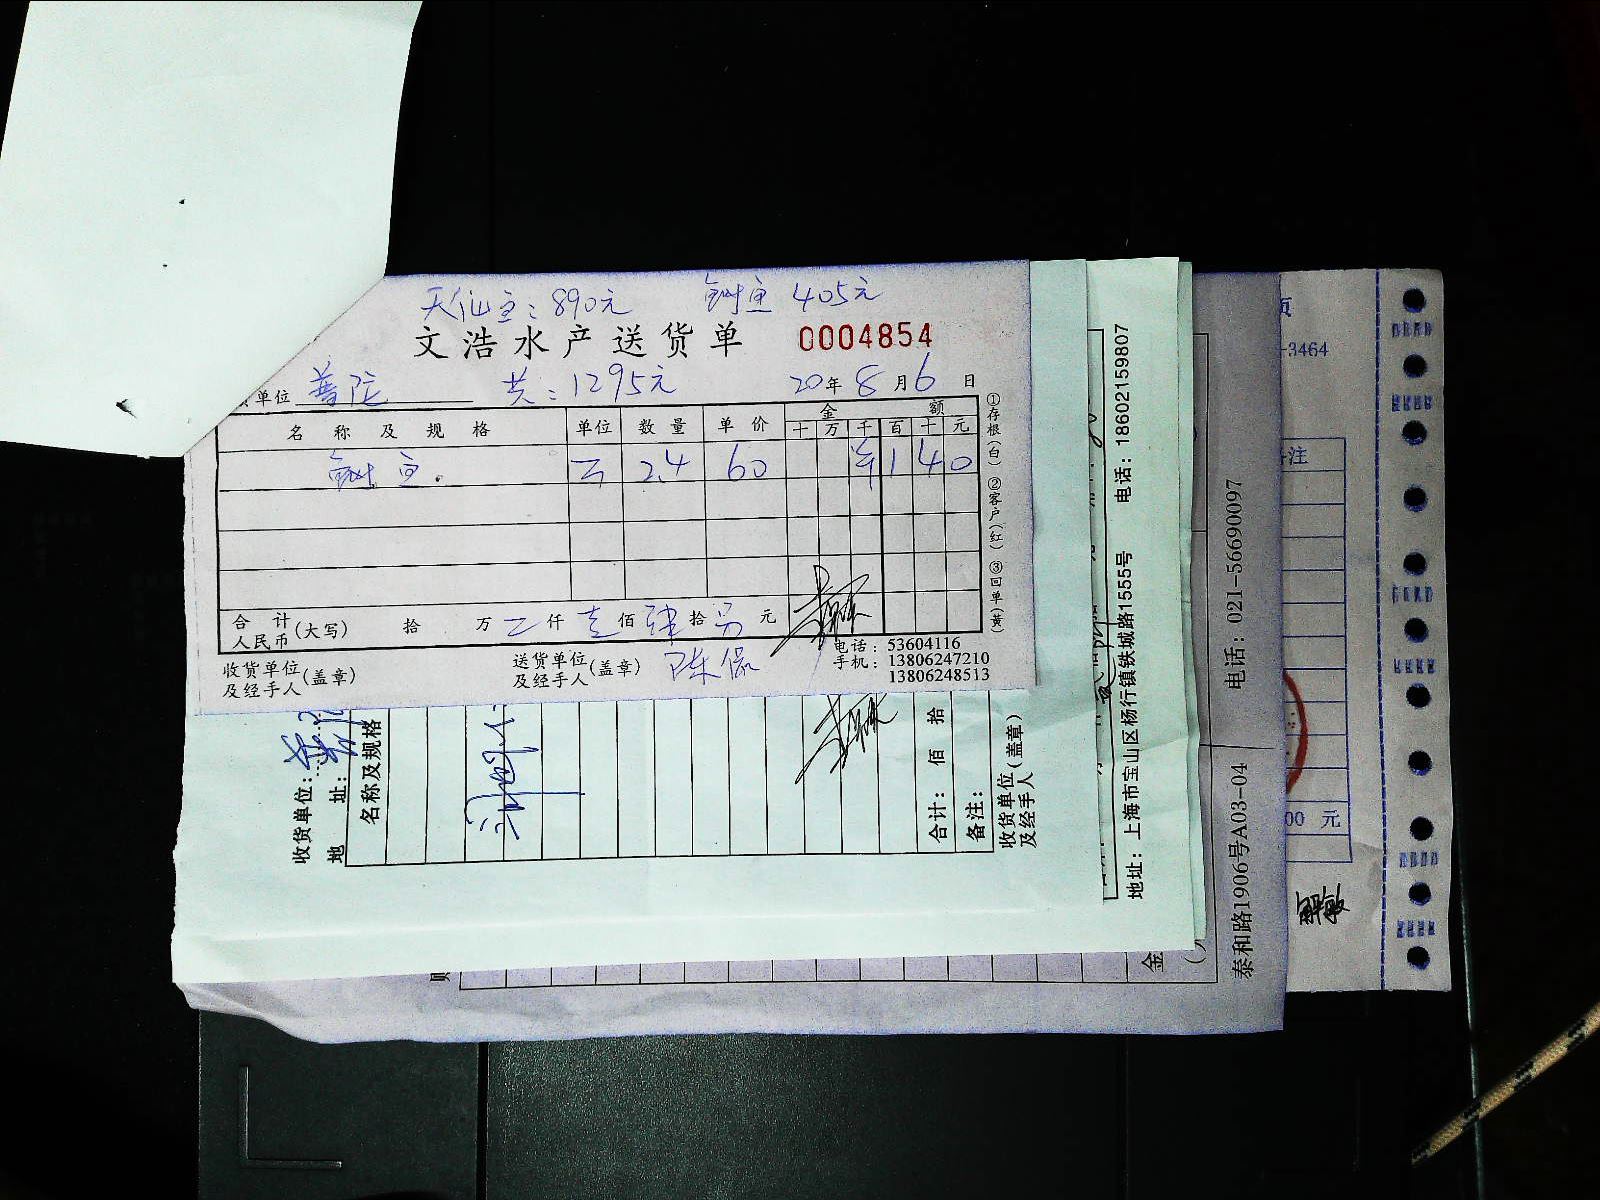 天仙宝：890元 鲥鱼 405元
文浩水产送货单 0004854
单位 普陀 共：1295元 20年8月6日
名称及规格 单位 数量 单价 金额
十 万 千 百 十 元
鲥鱼. 2.4 60 ¥140
合计人民币(大写) 拾 万 仟 壹佰肆拾 另 元
收货单位及经手人(盖章) 送货单位及经手人(盖章) 陈
电话：53604116
手机：13806247210
13806248513
①存根(白) ②客户(红) ③回单(黄)
收货单位：
地 址：
名称及规格
合计： 佰 拾
备注：
收货单位及经手人(盖章)
地址：上海市宝山区杨行镇铁城路1555号 电话：18602159807
金
泰和路1906号A03-04 电话：021-56690097
页
-3464
注
00 元